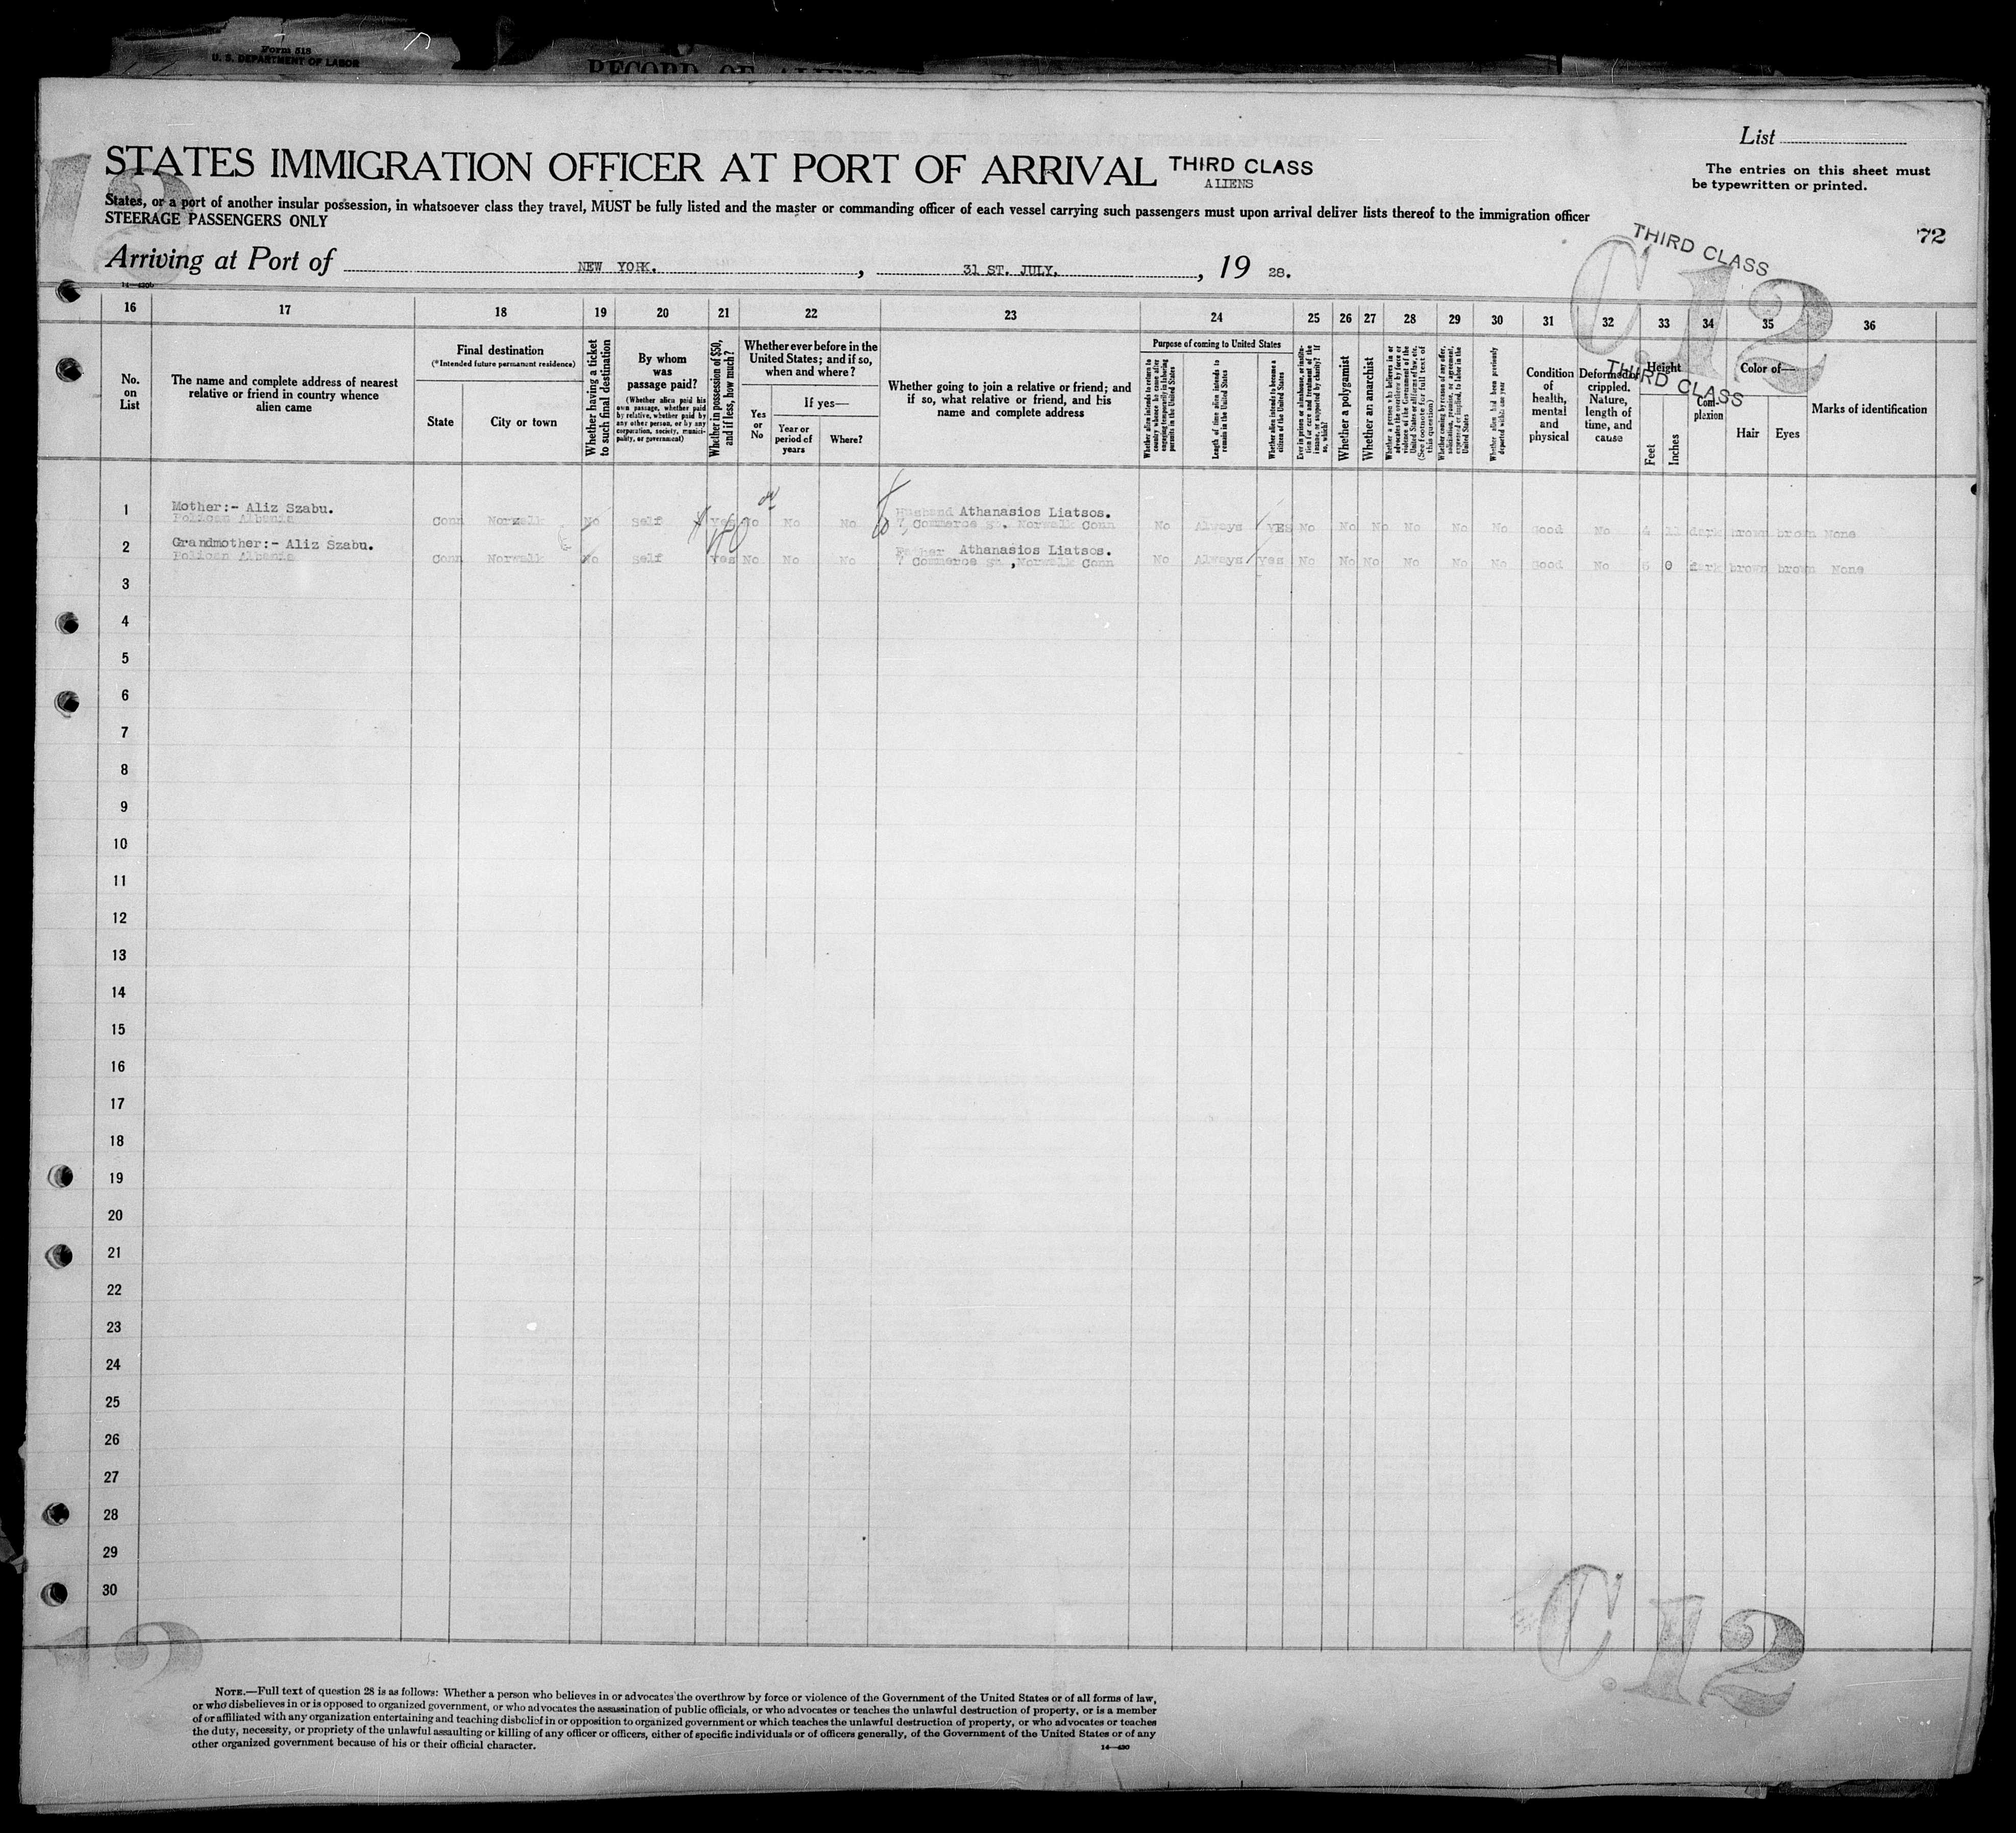 Form 518
U. S. DEPARTMENT OF LABOR
RECORD OF ALIENS
List
STATES IMMIGRATION OFFICER AT PORT OF ARRIVAL THIRD CLASS
ALIENS
The entries on this sheet must
be typewritten or printed.
States, or a port of another insular possession, in whatsoever class they travel, MUST be fully listed and the master or commanding officer of each vessel carrying such passengers must upon arrival deliver lists thereof to the immigration officer
STEERAGE PASSENGERS ONLY
12
72
THIRD CLASS
C.12
Arriving at Port of NEW YORK. , 31 ST. JULY. , 19 28.
16 17 18 19 20 21 22 23 24 25 26 27 28 29 30 31 32 33 34 35 36
No.
on
List
The name and complete address of nearest
relative or friend in country whence
alien came
Final destination
(*Intended future permanent residence)
State
City or town
Whether having a ticket
to such final destination
By whom
was
passage paid?
(Whether alien paid his
own passage, whether paid
by relative, whether paid by
any other person, or by any
corporation, society, munici-
pality, or government)
Whether in possession of $50,
and if less, how much?
Whether ever before in the
United States; and if so,
when and where?
Yes
or
No
If yes—
Year or
period of
years
Where?
Whether going to join a relative or friend; and
if so, what relative or friend, and his
name and complete address
Purpose of coming to United States
Whether alien intends to return to
country whence he came after
engaging temporarily in laboring
pursuits in the United States
Length of time alien intends to
remain in the United States
Whether alien intends to become a
citizen of the United States
Ever in prison or almshouse, or institu-
tion for care and treatment of the
insane, or supported by charity? If
so, which?
Whether a polygamist
Whether an anarchist
Whether a person who believes in or
advocates the overthrow by force or
violence of the Government of the
United States or all forms of law, etc.
(See footnote for full text of
this question)
Whether coming by reason of any offer,
solicitation, promise, or agreement,
expressed or implied, to labor in the
United States
Whether alien had been previously
deported within one year
Condition
of
health,
mental
and
physical
Deformed or
crippled.
Nature,
length of
time, and
cause
Height
Feet
Inches
THIRD CLASS
Com-
plexion
Color of—
Hair
Eyes
Marks of identification
1 Mother:- Aliz Szabu. Husband Athanasios Liatsos.
Polican Albania Conn Norwalk No Self Yes No No No 7, Commerce St. Norwalk Conn No Always YES No No No No No No Good No 4 11 dark brown brown None
2 Grandmother:- Aliz Szabu. Father Athanasios Liatsos.
Polican Albania Conn Norwalk No Self Yes No No No 7 Commerce St, Norwalk Conn No Always Yes No No No No No No Good No 5 0 dark brown brown None
3
4
5
6
7
8
9
10
11
12
13
14
15
16
17
18
19
20
21
22
23
24
25
26
27
28
29
30
12
C.12
NOTE.—Full text of question 28 is as follows: Whether a person who believes in or advocates the overthrow by force or violence of the Government of the United States or of all forms of law,
or who disbelieves in or is opposed to organized government, or who advocates the assassination of public officials, or who advocates or teaches the unlawful destruction of property, or is a member
of or affiliated with any organization entertaining and teaching disbelief in or opposition to organized government or which teaches the unlawful destruction of property, or who advocates or teaches
the duty, necessity, or propriety of the unlawful assaulting or killing of any officer or officers, either of specific individuals or of officers generally, of the Government of the United States or of any
other organized government because of his or their official character.
14—430